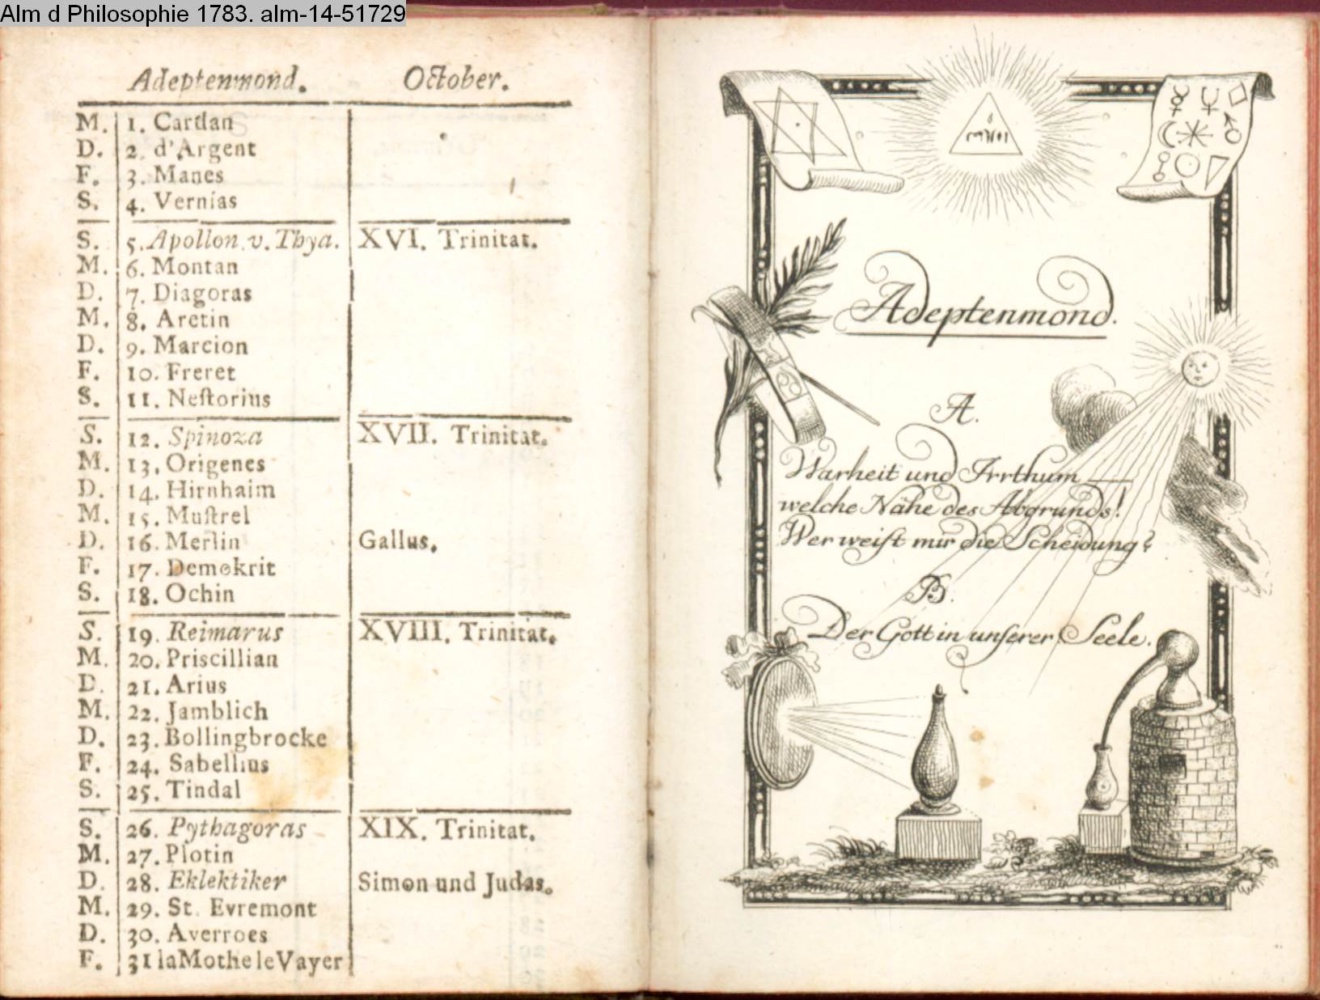 Alm d Philosophie 1783. alm-14-51729
Adeptenmond. October.
M. 1. Cardan
D. 2. d'Argent
F. 3. Manes
S. 4. Vernias
S. 5. Apollon. v. Thya. XVI. Trinitat.
M. 6. Montan
D. 7. Diagoras
M. 8. Aretin
D. 9. Marcion
F. 10. Freret
S. 11. Neſtorius
S. 12. Spinoza XVII. Trinitat.
M. 13. Origenes
D. 14. Hirnhaim
M. 15. Muſtrel
D. 16. Merlin Gallus.
F. 17. Demokrit
S. 18. Ochin
S. 19. Reimarus XVIII. Trinitat.
M. 20. Priscillian
D. 21. Arius
M. 22. Jamblich
D. 23. Bollingbrocke
F. 24. Sabellius
S. 25. Tindal
S. 26. Pythagoras XIX. Trinitat.
M. 27. Plotin
D. 28. Eklektiker Simon und Judas.
M. 29. St. Evremont
D. 30. Averroes
F. 31 la Mothe le Vayer
Adeptenmond.
A.
Warheit und Irrthum —
welche Nähe des Abgrunds!
Wer weiſt mir die Scheidung?
B.
Der Gott in unſerer Seele.